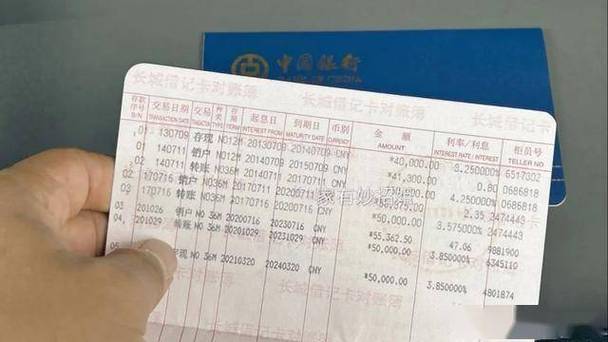 中国银行
BANK OF CHINA
长城借记卡对账簿 长城借记卡对账簿 长城借记卡
存款序号 交易日期 交易 种类 存期 起息日 到期日 币别 金 额 利率/利息 柜员号
S/N TRANSACTION DATE TERM INTEREST FROM MATURITY DATE CNY AMOUNT INTEREST RATE / INTEREST TELLER NO
01 130709 存现 NO12M 20130709 20140709 CNY *40,000.00 3.250000% 6517302
01 140711 销户 NO12M 20130709 20140709 CNY *41,300.00 0.80 0686818
02 140711 转账 NO36M 20140711 20170711 CNY 4.250000% 0686818
02 170716 销户 NO36M 2.35 2474443
03 170716 转账 NO36M 20170716 20200716 CNY *50,000.00 3.575000% 2474443
家有妙招
03 201026 销户 NO 36M 20200716 20230716 CNY *55,362.50 47.06 9881900
04 201029 转账 NO 36M 20201029 20231029 CNY *50,000.00 3.850000% 6345110
05 存现 NO 36M 20210320 20240320 CNY *50,000.00 3.850000% 4801874
长城借记卡对账簿